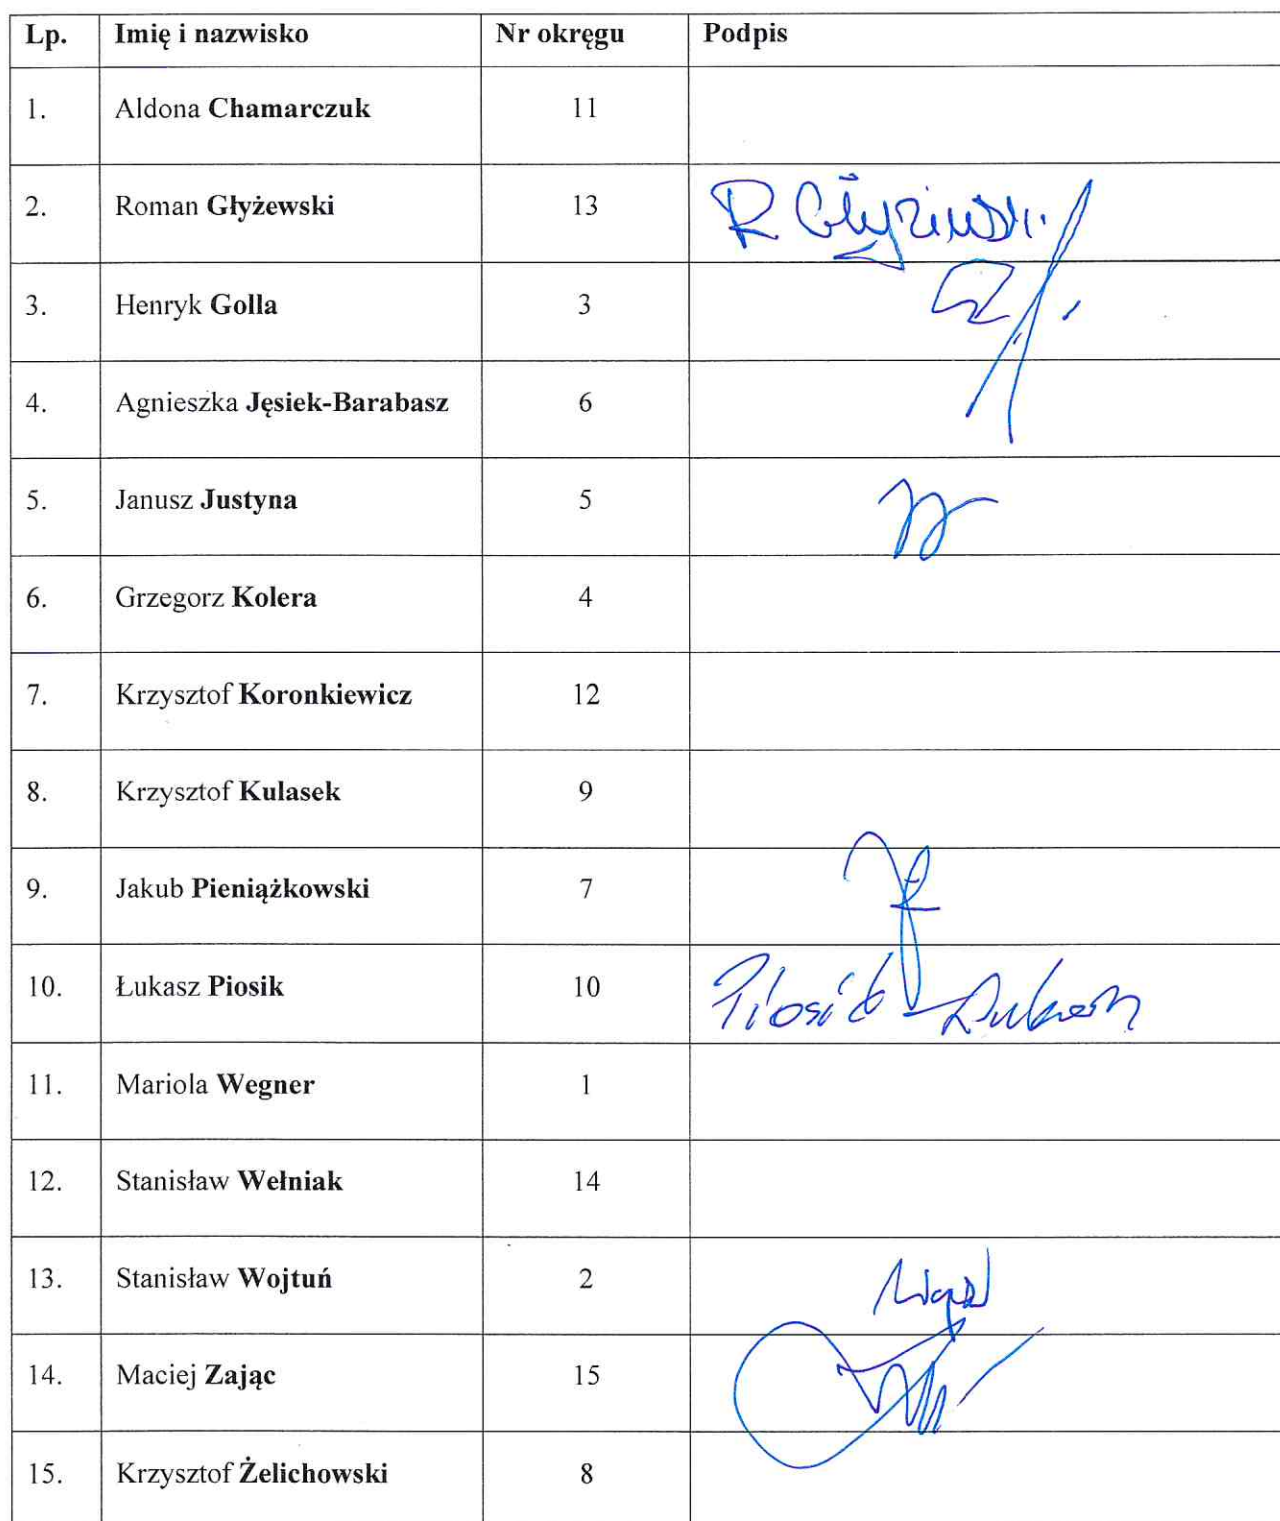 Lp. Imię i nazwisko Nr okręgu Podpis
1. Aldona Chamarczuk 11
2. Roman Głyżewski 13 R Głyżewski
3. Henryk Golla 3
4. Agnieszka Jęsiek-Barabasz 6
5. Janusz Justyna 5
6. Grzegorz Kolera 4
7. Krzysztof Koronkiewicz 12
8. Krzysztof Kulasek 9
9. Jakub Pieniążkowski 7
10. Łukasz Piosik 10 Piosik Łukasz
11. Mariola Wegner 1
12. Stanisław Wełniak 14
13. Stanisław Wojtuń 2
14. Maciej Zając 15
15. Krzysztof Żelichowski 8